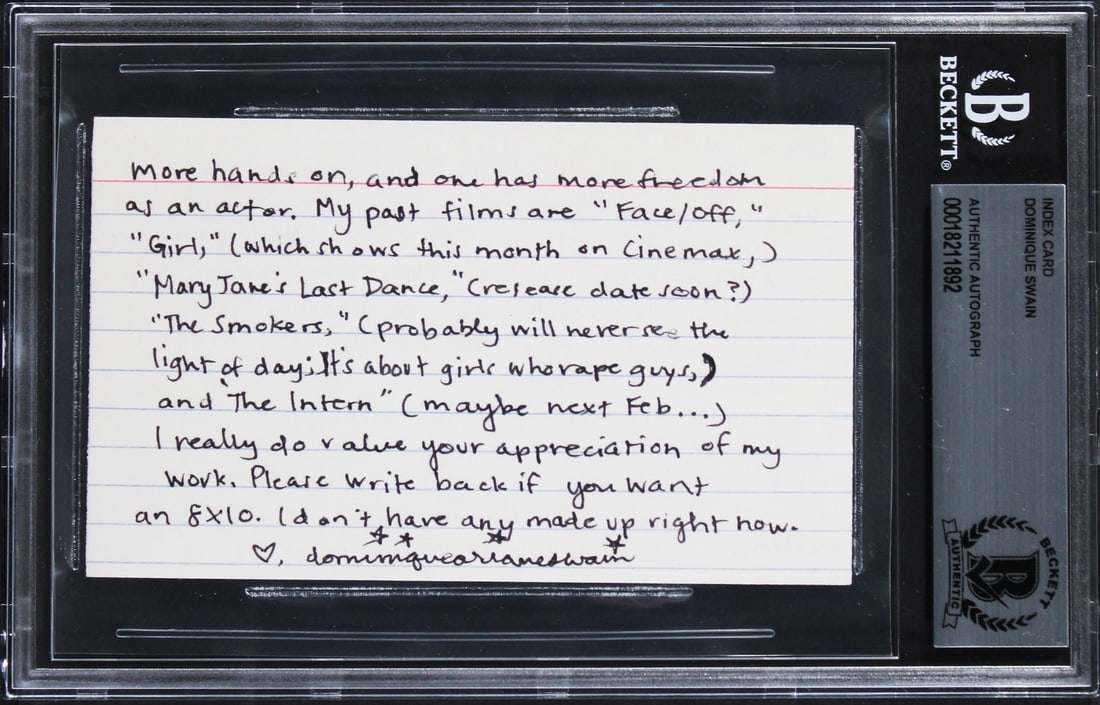 more hands on, and one has more freedom
as an actor. My past films are "Face/off,"
"Girl," (which shows this month on Cinemax,)
"Mary Jane's Last Dance," (release date soon?)
"The Smokers," (probably will never see the
light of day; It's about girls who rape guys,)
and "The Intern" (maybe next Feb...)
I really do value your appreciation of my
work. Please write back if you want
an 8x10. I don't have any made up right now.
♡, dominiquearianeswain
BECKETT®
INDEX CARD
DOMINIQUE SWAIN
AUTHENTIC AUTOGRAPH
00018211892
BECKETT
AUTHENTIC